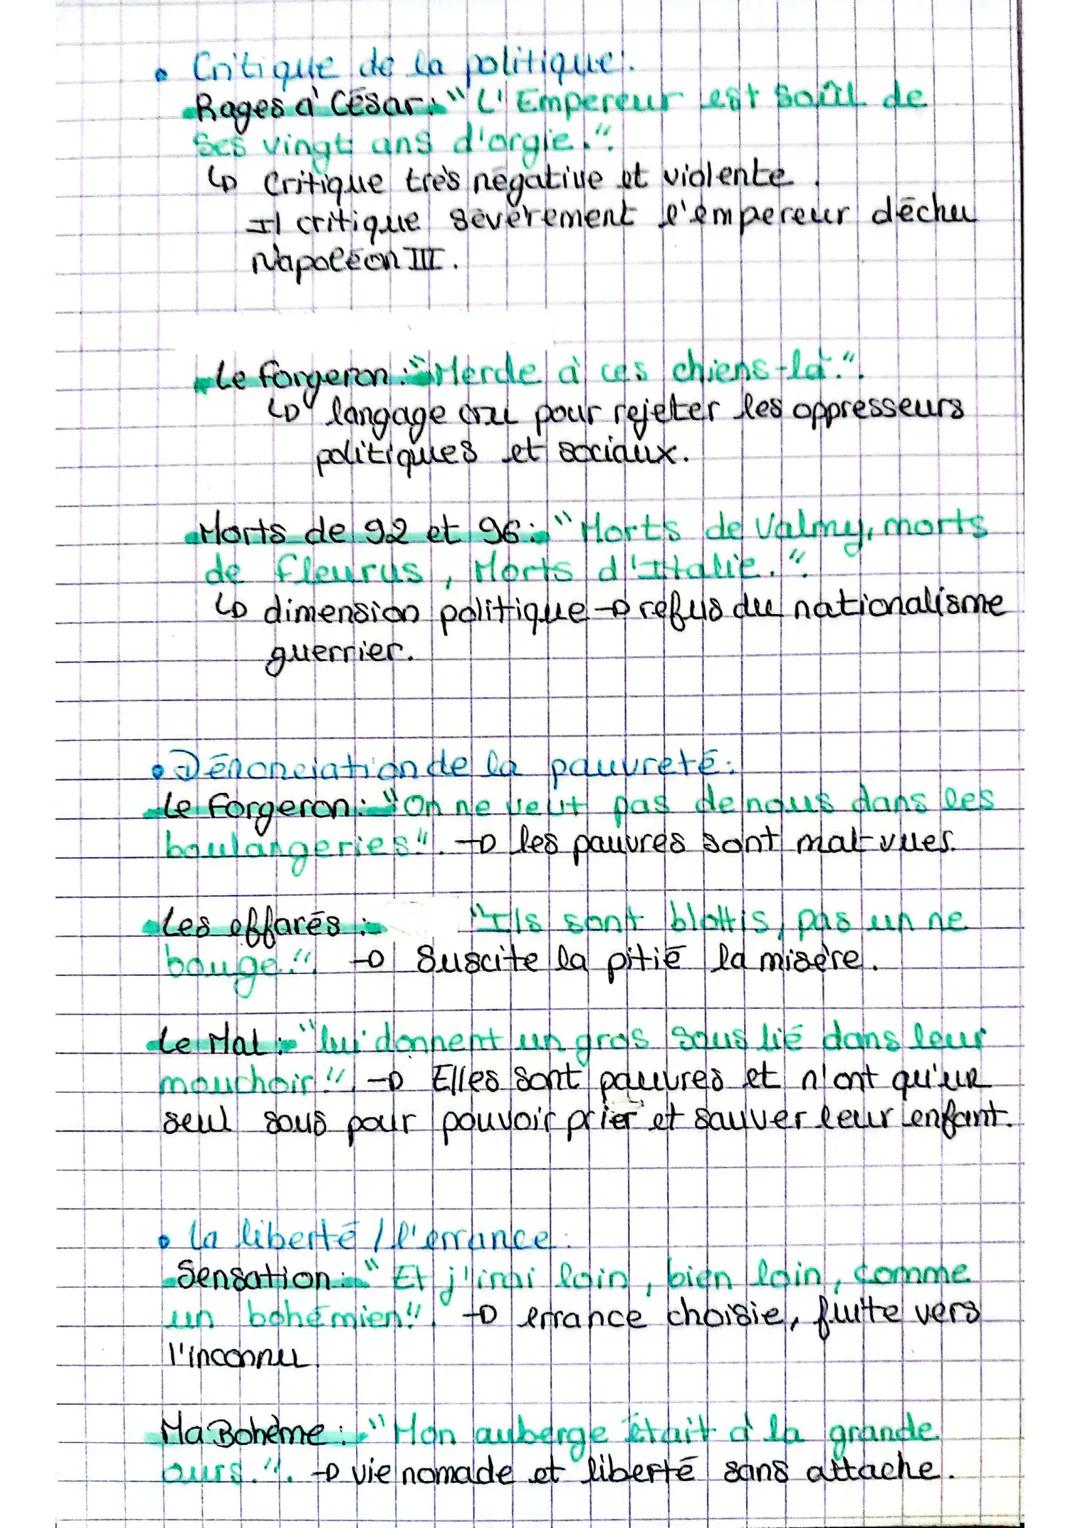 • Critique de la politique :
Rages à César : "L'Empereur est soûl de
ses vingt ans d'orgie.".
↳ Critique très négative et violente.
Il critique sévèrement l'empereur déchu
Napoléon III.
Le forgeron : "Merde à ces chiens-là.".
↳ langage cru pour rejeter les oppresseurs
politiques et sociaux.
Morts de 92 et 96 : "Morts de Valmy, morts
de fleurus, Morts d'Italie.".
↳ dimension politique → refus du nationalisme
guerrier.
• Dénonciation de la pauvreté :
Le forgeron : "On ne veut pas de nous dans les
boulangeries". → les pauvres sont mal vues.
Les effarés : "Ils sont blottis, pas un ne
bouge.". → Suscite la pitié la misère.
Le Mal : "lui donnent un gros sous lié dans leur
mouchoir". → Elles sont pauvres et n'ont qu'un
seul sous pour pouvoir prier et sauver leur enfant.
• La liberté / l'errance :
Sensation : "Et j'irai loin, bien loin, comme
un bohémien". → errance choisie, fuite vers
l'inconnu.
Ma Bohème : "Mon auberge était à la grande
ours.". → vie nomade et liberté sans attache.